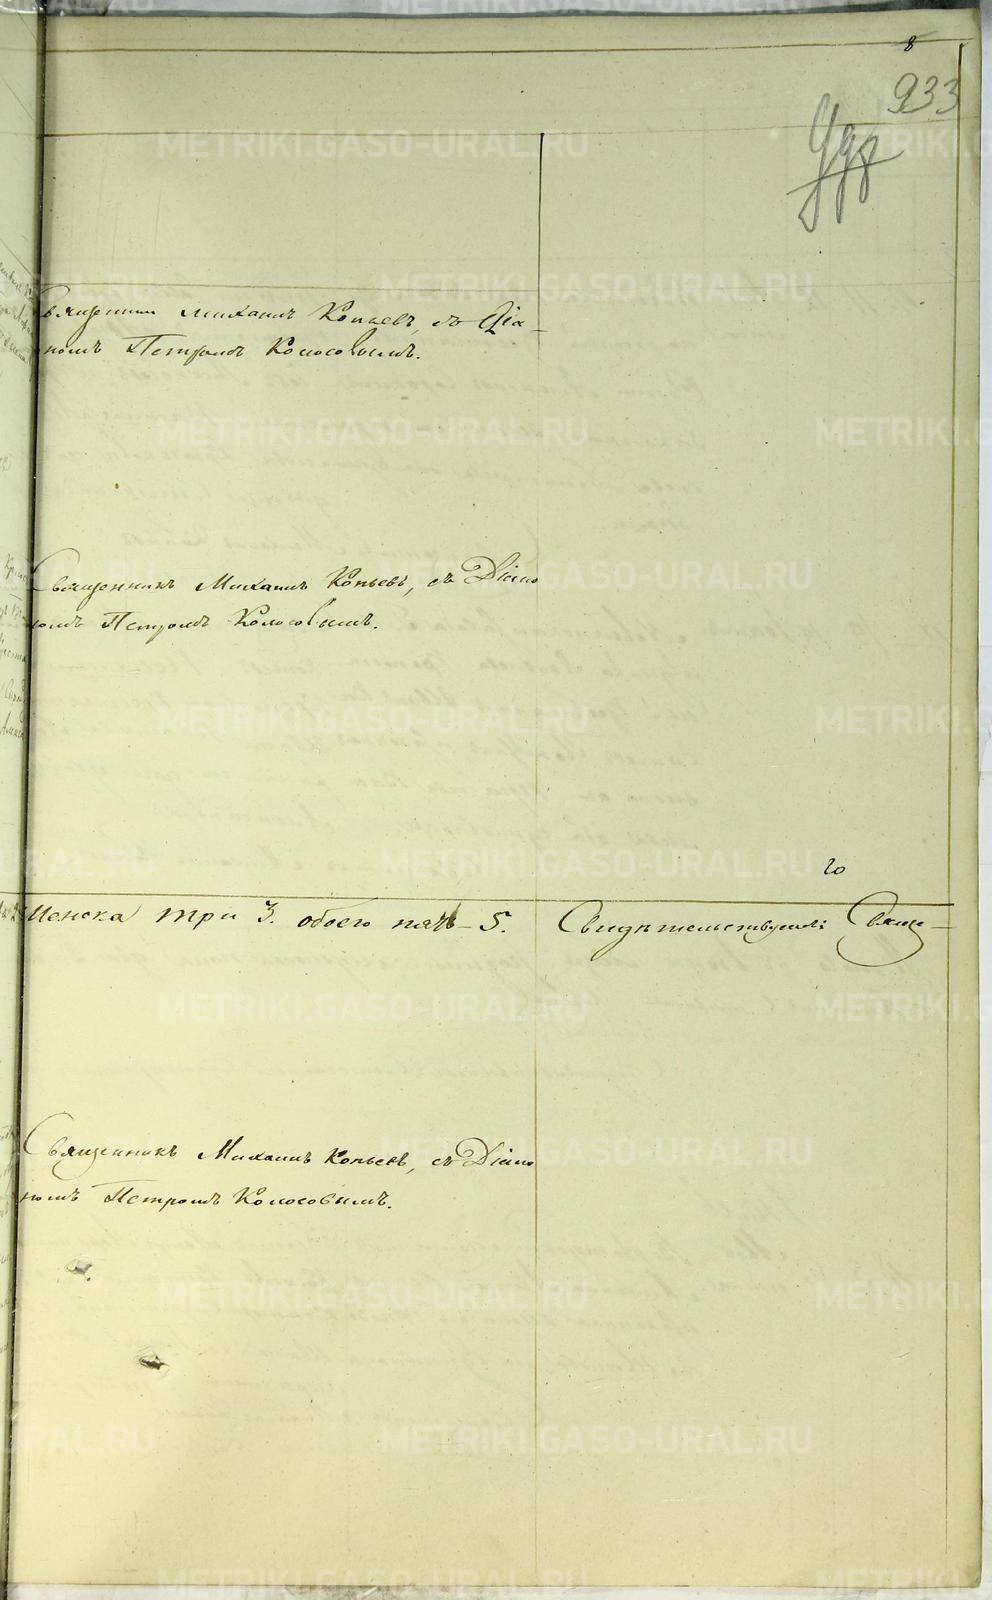 8
933
Священник Михаил Копьевъ, съ Діа-
кономъ Петромъ Колосовымъ.
Священникъ Михаилъ Копьевъ, съ Діако
номъ Петромъ Колосовымъ.
го
женска три 3. обоего полъ - 5. Свидѣтельствуемъ: Свяще-
Священникъ Михаилъ Копьевъ, съ Діако
номъ Петромъ Колосовымъ.
METRIKI.GASO-URAL.RU